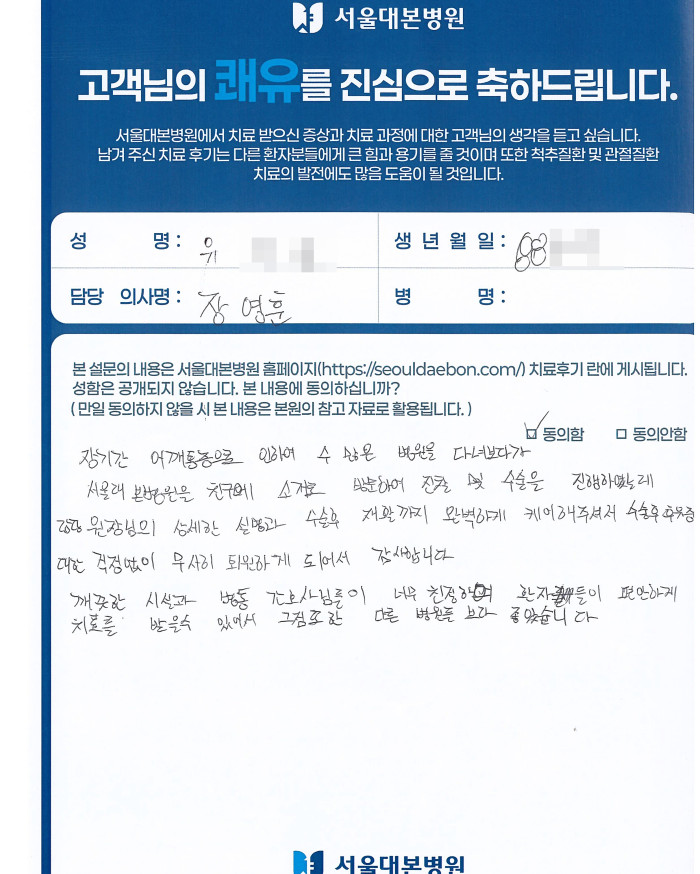 서울대본병원
고객님의 쾌유를 진심으로 축하드립니다.
서울대본병원에서 치료 받으신 증상과 치료 과정에 대한 고객님의 생각을 듣고 싶습니다.
남겨 주신 치료 후기는 다른 환자분들에게 큰 힘과 용기를 줄 것이며 또한 척추질환 및 관절질환
치료의 발전에도 많음 도움이 될 것입니다.
성 명 : 유
생 년 월 일 : 88
담당 의사명 : 장영훈
병 명 :
본 설문의 내용은 서울대본병원 홈페이지(https://seouldaebon.com/) 치료후기 란에 게시됩니다.
성함은 공개되지 않습니다. 본 내용에 동의하십니까?
( 만일 동의하지 않을 시 본 내용은 본원의 참고 자료로 활용됩니다. )
☑ 동의함 □ 동의안함
장기간 어깨통증으로 인하여 수 많은 병원을 다녀보다가
서울대 본병원을 친구에 소개로 방문하여 진찰 및 수술을 진행하였는데
담당 원장님의 상세한 설명과 수술후 재활까지 완벽하게 케어해주셔서 수술후
대한 걱정없이 무사히 퇴원하게 되어서 감사합니다
깨끗한 시설과 병동 간호사님들이 너무 친절하여 환자들이 편안하게
치료를 받을수 있어서 그점또한 다른 병원들 보다 좋았습니다
서울대본병원